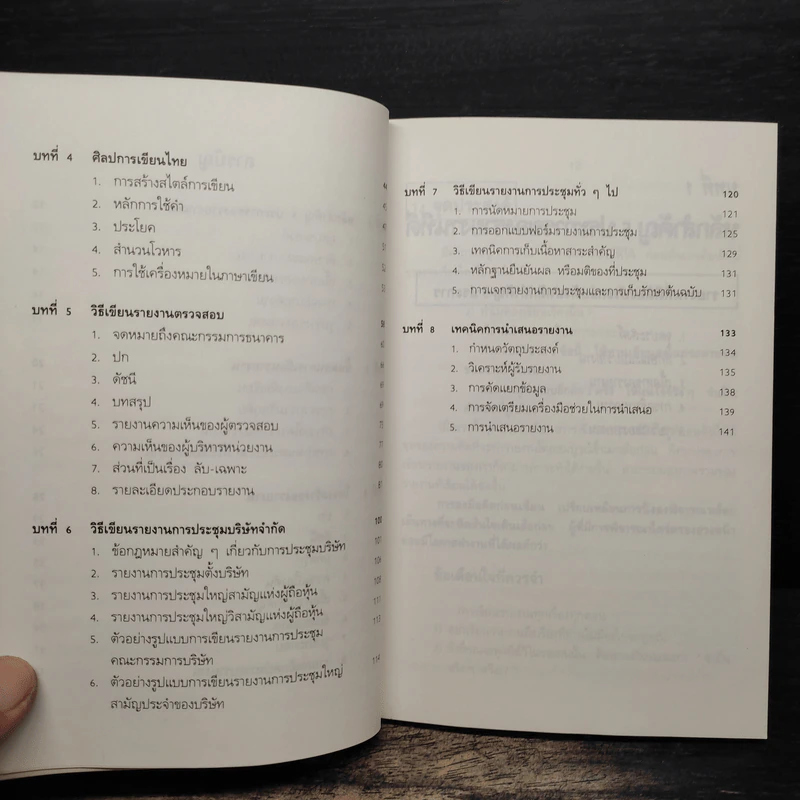 บทที่ 4 ศิลปการเขียนไทย
1. การสร้างสไตล์การเขียน
2. หลักการใช้คำ
3. ประโยค
4. สำนวนโวหาร
5. การใช้เครื่องหมายในภาษาเขียน
บทที่ 5 วิธีเขียนรายงานตรวจสอบ
1. จดหมายถึงคณะกรรมการธนาคาร
2. ปก
3. ดัชนี
4. บทสรุป
5. รายงานความเห็นของผู้ตรวจสอบ
6. ความเห็นของผู้บริหารหน่วยงาน
7. ส่วนที่เป็นเรื่อง ลับ-เฉพาะ
8. รายละเอียดประกอบรายงาน
บทที่ 6 วิธีเขียนรายงานการประชุมบริษัทจำกัด 100
1. ข้อกฎหมายสำคัญ ๆ เกี่ยวกับการประชุมบริษัท 107
2. รายงานการประชุมตั้งบริษัท 108
3. รายงานการประชุมใหญ่สามัญแห่งผู้ถือหุ้น 108
4. รายงานการประชุมใหญ่วิสามัญแห่งผู้ถือหุ้น 111
5. ตัวอย่างรูปแบบการเขียนรายงานการประชุม 113
คณะกรรมการบริษัท
6. ตัวอย่างรูปแบบการเขียนรายงานการประชุมใหญ่ 114
สามัญประจำของบริษัท
บทที่ 7 วิธีเขียนรายงานการประชุมทั่ว ๆ ไป 120
1. การนัดหมายการประชุม 121
2. การออกแบบฟอร์มรายงานการประชุม 125
3. เทคนิคการเก็บเนื้อหาสาระสำคัญ 129
4. หลักฐานยืนยันผล หรือมติของที่ประชุม 131
5. การแจกรายงานการประชุมและการเก็บรักษาต้นฉบับ 131
บทที่ 8 เทคนิคการนำเสนอรายงาน 133
1. กำหนดวัตถุประสงค์ 134
2. วิเคราะห์ผู้รับรายงาน 135
3. การคัดแยกข้อมูล 138
4. การจัดเตรียมเครื่องมือช่วยในการนำเสนอ 139
5. การนำเสนอรายงาน 141